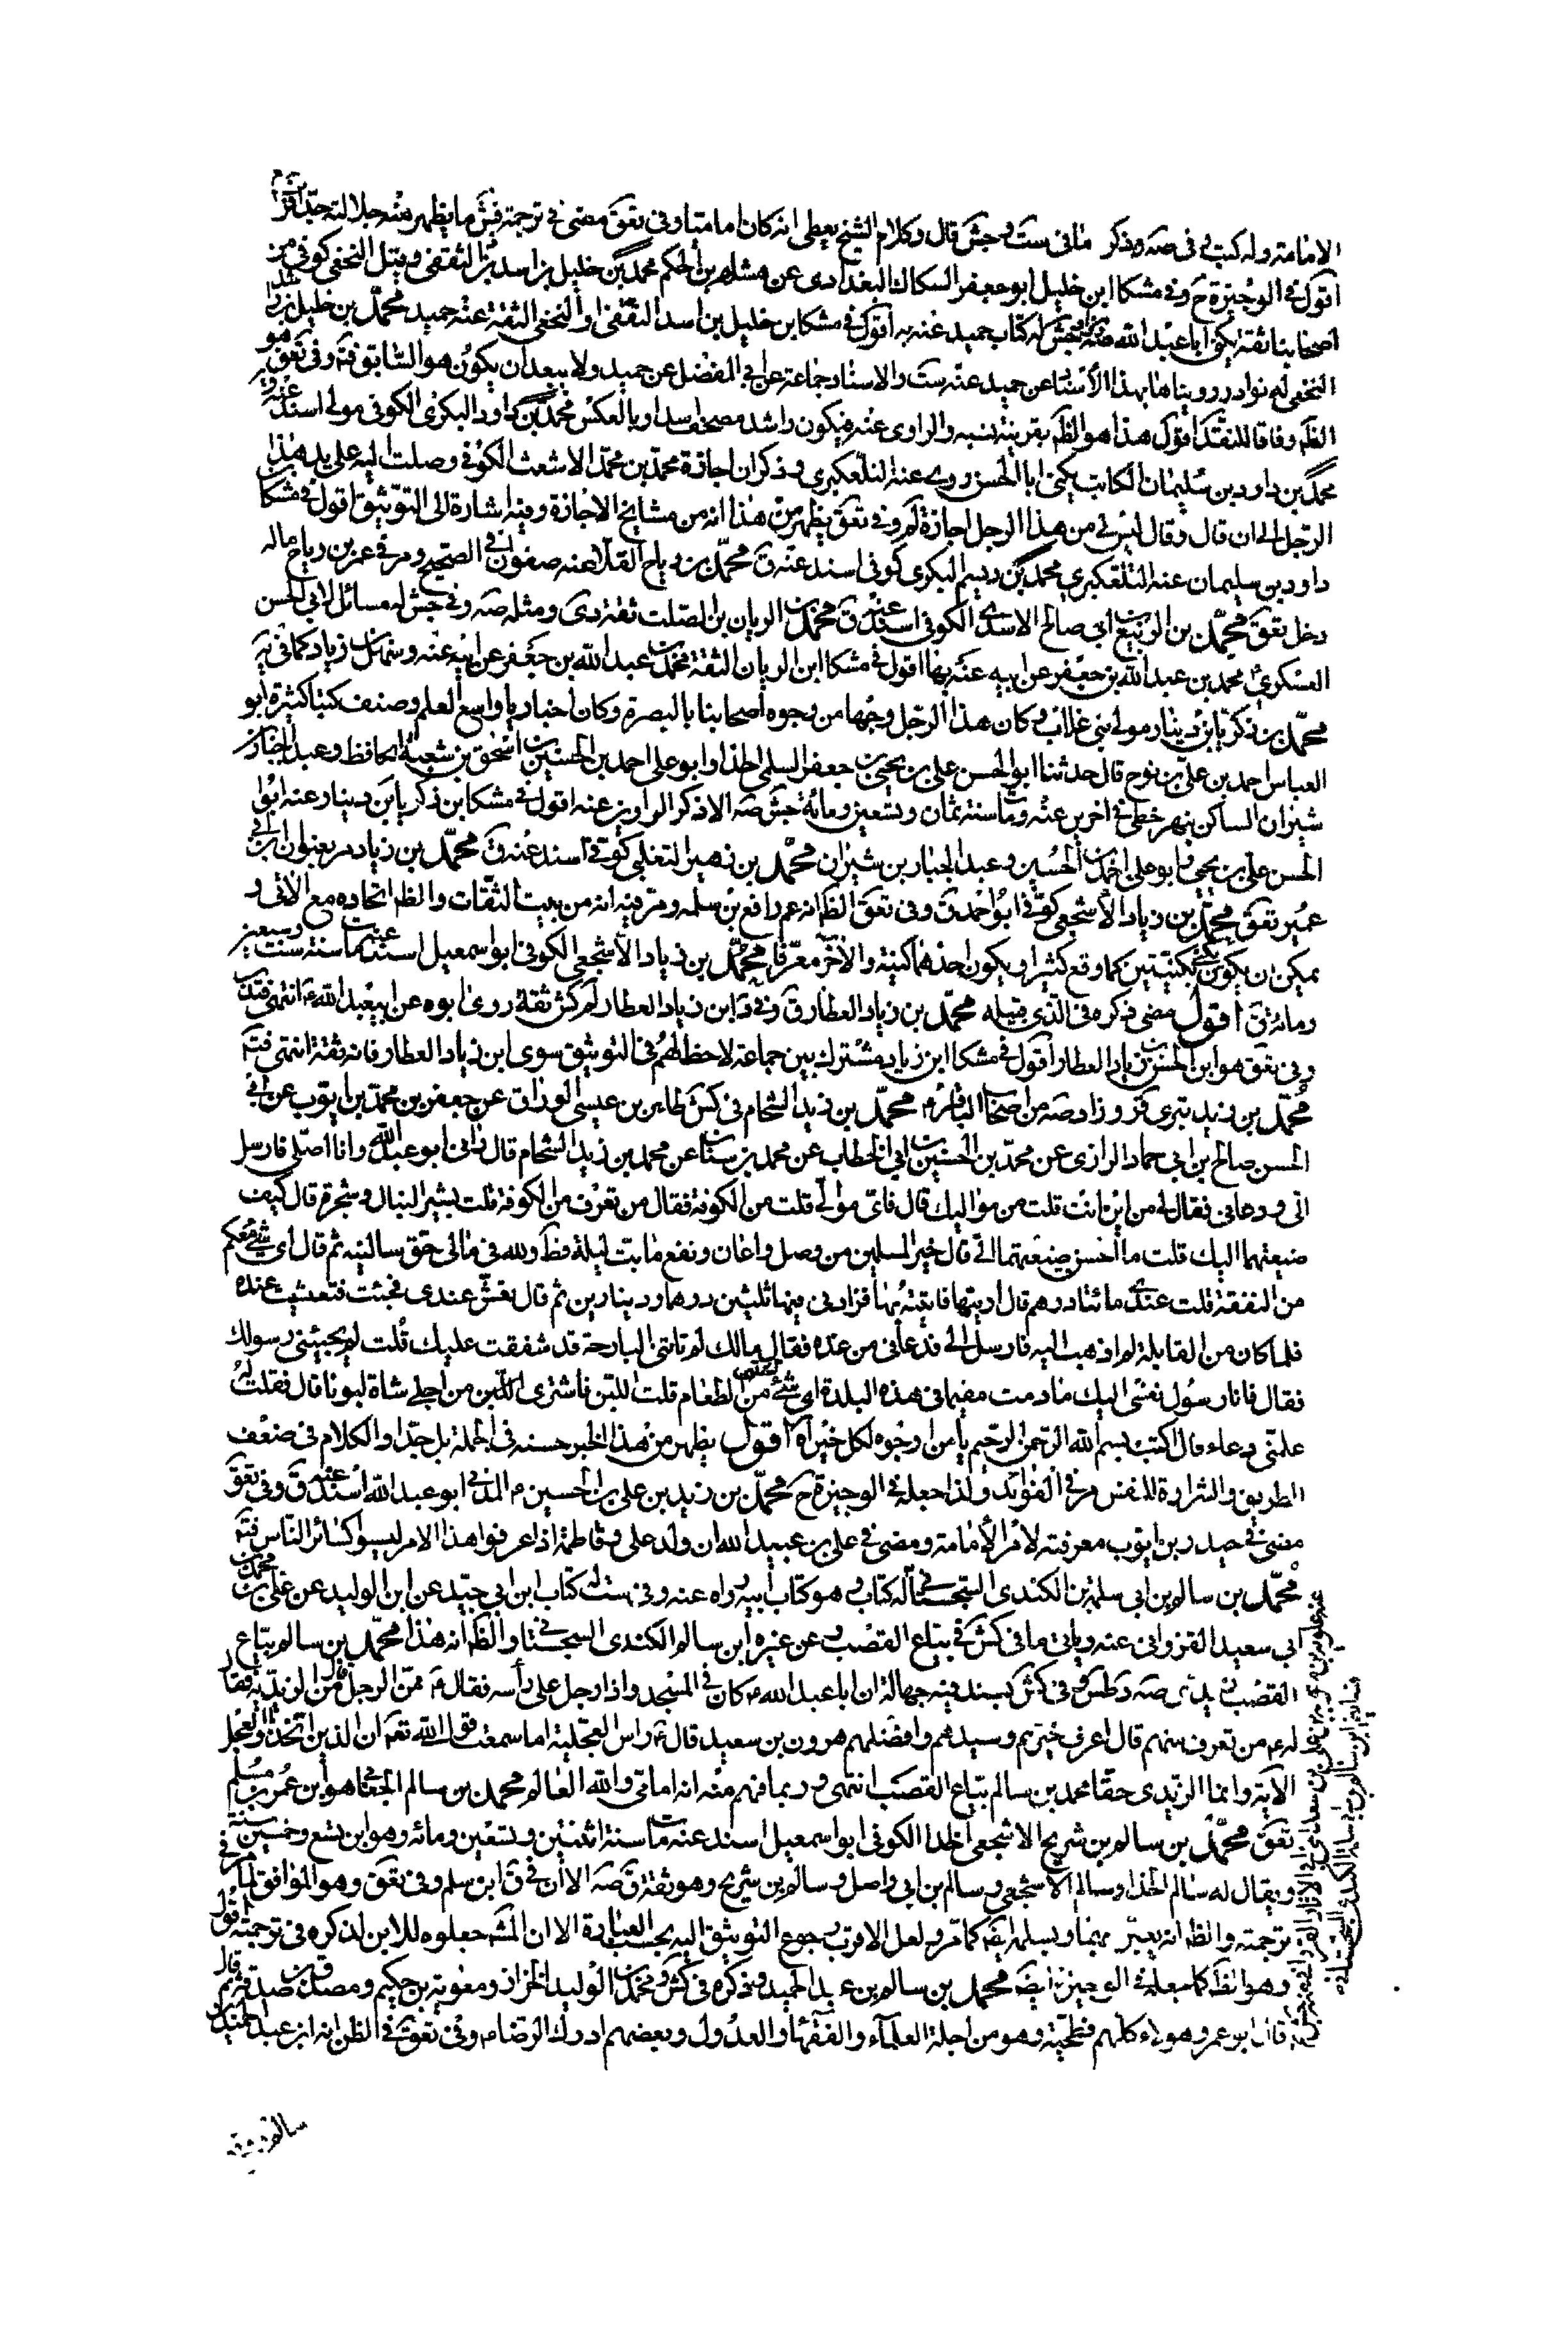 الامامة وله كتب وفى صه وذكر مافى ست وجش قال وكلام الشيخ يعطى انه كان اماميا وفى تعق مضى فى ترجمة ما يظهر منه جلالته جدا
اقول فى الوجيزة ح وفى مشكا ابن خليل ابو جعفر السكاك البغدادى عن هشام بن الحكم محمد بن خليل بن اسد الثقفى وقيل النخعى كوفى من
اصحابنا ثقة يكنى ابا عبد الله جش له كتاب حميد عنه به اقول فى مشكا ابن خليل بن اسد الثقفى او النخعى الثقة عنه حميد محمد بن خليل بن راشد
النخعى له نوادر رويناها بهذا الاسناد عن حميد عنه ست والاسناد جماعة عن ابى المفضل عن حميد ولا يبعد ان يكون هو السابق فتم وفى تعق هو
الظم وفاقا للنقد اقول هذا هو الظم بقرينة نسبه والراوى عنه فيكون راشد مصحف اسد او بالعكس محمد بن داود البكرى الكوفى مولى اسند عنه ق
محمد بن داود بن سليمان الكاتب يكنى ابا الحسن روى عنه التلعكبرى وذكر ان اجازة محمد بن محمد الاشعث الكوفى وصلت اليه على يد هذا
الرجل الى ان قال وقال ليس لى من هذا الرجل اجازة لم وفى تعق يظهر من هذا انه من مشايخ الاجازة وفيه اشارة الى التوثيق اقول فى مشكا
داود بن سليمان عنه التلعكبرى محمد بن رستم البكرى كوفى اسند عنه ق محمد بن رباح القلا عنه صفوان فى الصحيح ومر فى عمر بن رياح ماله
دخل تعق محمد بن الربيع ابى صالح الاسدى الكوفى اسند عنه ق محمد بن الريان بن الصلت ثقة دى ومثله صه وفى جش له مسائل لابى الحسن
العسكرى محمد بن عبد الله بن جعفر عن ابيه عنه بها اقول فى مشكا ابن الريان الثقة محمد بن عبد الله بن جعفر عن ابيه عنه وسهل بن زياد كما فى يه
محمد بن زكريا بن دينار مولى بنى غلاب وكان هذا الرجل وجها من وجوه اصحابنا بالبصرة وكان اخباريا واسع العلم وصنف كتبا كثيرة ابو
العباس احمد بن على بن نوح قال حدثنا ابو الحسن على بن يحيى بن جعفر السلمى الحذا وابو على احمد بن الحسين بن اسحق بن شعبة الحافظ وعبد الجبار بن
شيران الساكن بنهر خطى فى اخرين عنه ومات سنة ثمان وتسعين ومائة جش صه الا ذكر الراوين عنه اقول فى مشكا بن زكريا بن دينار عنه ابو
الحسن على بن يحيى وابو على احمد بن الحسين وعبد الجبار بن شيران محمد بن زهير التغلبى كوفى اسند عنه ق محمد بن زياد مر بعنوان ابن ابى
عمير تعق محمد بن زياد الاشجعى كوفى ابو احمد ق وفى تعق الظم انه عم رافع بن سلمه ومر فيه انه من بيت الثقات والظم اتحاده مع الاتى و
يمكن ان يكون يكنى بكنيتين كما وقع كثيرا ويكون احدهما كنيته والاخر معرفا محمد بن زياد الاشجعى الكوفى ابو اسمعيل اسند عنه مات سنة ست وسبعين
ومائة ق اقول مضى ذكره فى الذى قبيله محمد بن زياد العطار ق وفى د ابن زياد العطار لم كش ثقة روى ابوه عن ابى عبد الله ع انتهى فتدبر
وفى تعق هو ابن الحسن بن زياد العطار اقول فى مشكا ابن زياد مشترك بين جماعة لاحظ لهم فى التوثيق سوى ابن زياد العطار فانه ثقة انتهى فتم
محمد بن زيد بترى قر وزاد صه من اصحاب الباقر ع محمد بن زيد الشحام فى كش طاهر بن عيسى الوراق عن جعفر بن محمد بن ايوب عن ابى
الحسن صالح بن ابى حماد الرازى عن محمد بن الحسين بن ابى الخطاب عن محمد بن سنان عن محمد بن زيد الشحام قال رانى ابو عبد الله وانا اصلى فارسل
الى ودعانى فقال لى من اين انت قلت من مواليك قال فاى موالى قلت من الكوفة فقال من تعرف من الكوفة قلت بشير النبال وشجرة قال كيف
صنيعتهما اليك قلت ما احسن صنيعتهما الى قال خير المسلمين من وصل واعان ونفع مابت ليلة قط ولله فى مالى حق يسالنيه ثم قال اى شئ معكم
من النفقة قلت عندى مائتا درهم قال ارنيها فاتيته بها فزادنى فيها ثلثين درهما ودينارين ثم قال تعش عندى فجئت فتعشيت عنده
فلما كان من القابلة لم اذهب اليه فارسل الى فدعانى من عنده فقال مالك لم تاتنى البارحة قد شفقت عليك قلت لم يجئنى رسولك
فقال فانا رسول نفسى اليك ما دمت مقيما فى هذه البلدة اى شئ تشتهى من الطعام قلت اللبن فاشترى اللبن من اجلى شاة لبونا قال فقلت له
علمنى دعاء قال اكتب بسم الله الرحمن الرحيم يا من ارجوه لكل خير اه اقول يظهر من هذا الخبر حسنه فى الجملة بل جدا والكلام فى ضعف
الطريق والشهادة للنفس مر فى الفوائد ولذا جعله فى الوجيزة ح محمد بن زيد بن على بن الحسين ع المدنى ابو عبد الله اسند عنه ق وفى تعق
مضى فى حيدر بن ايوب معرفته لامر الامامة ومضى فى على بن عبيد الله ان ولد على وفاطمة اذا عرفوا هذا الامر ليسوا كسائر الناس فتم
محمد بن سالم بن ابى سلمة بن الكندى السجستانى له كتاب وهو كتاب ابيه رواه عنه وفى ست له كتاب ابن ابى جيد عن ابن الوليد عن على بن محمد بن
ابى سعيد القيروانى عنه وياتى مافى كش فى بياع القصب وعن غيره ابن سالم الكندى السجستانى والظم انه هذا محمد بن سالم بياع
القصب زيدى صه د طس وفى كش بسند فيه جهالة ان ابا عبد الله ع كان فى المسجد واذا رجل على رأسه فقال ع ممن الرجل قال من الزيدية فقال
له ع من تعرف منهم قال اعرف خيرهم وسيدهم وافضلهم هرون بن سعيد قال ع راس العجلية اما سمعت قول الله تعم ان الذين اتخذوا العجل
الآية وانما الزيدى حقا محمد بن سالم بياع القصب انتهى وربما فهم منه انه امامى والله العالم محمد بن سالم الجعابى هو ابن عمر بن مسلم
تعق محمد بن سالم بن شريح الاشجعى الحذا الكوفى ابو اسمعيل اسند عنه مات سنة اثنتين وتسعين ومائه وهو ابن تسع وخمسين سنة
ويقال له سالم الحذا وسالم الاشجعى وسالم بن ابى واصل وسالم بن شريح وهو ثقة ق صه الا ان فى ق ابن سلم وفى تعق وهو الموافق لما مر فى
ترجمته والظم انه يعبر بهما وبسلمة ايضا كما مر ولعل الاقرب رجوع التوثيق اليه بحسب العبارة الا ان المش جعلوه للابن لذكره فى ترجمته اقول
وهو الظم كما جعله فى الوجيزة ايضا محمد بن سالم بن عبد الحميد وذكره فى كش ومحمد بن الوليد الخزاز ومعوية بن حكيم ومصدق بن صدقة ثم قال
قال ابو عمر وهولاء كلهم فطحية وهو من اجلة العلماء والفقهاء والعدول وبعضهم ادرك الرضا ع وفى تعق فى الظن انه ابن عبد الحميد بن